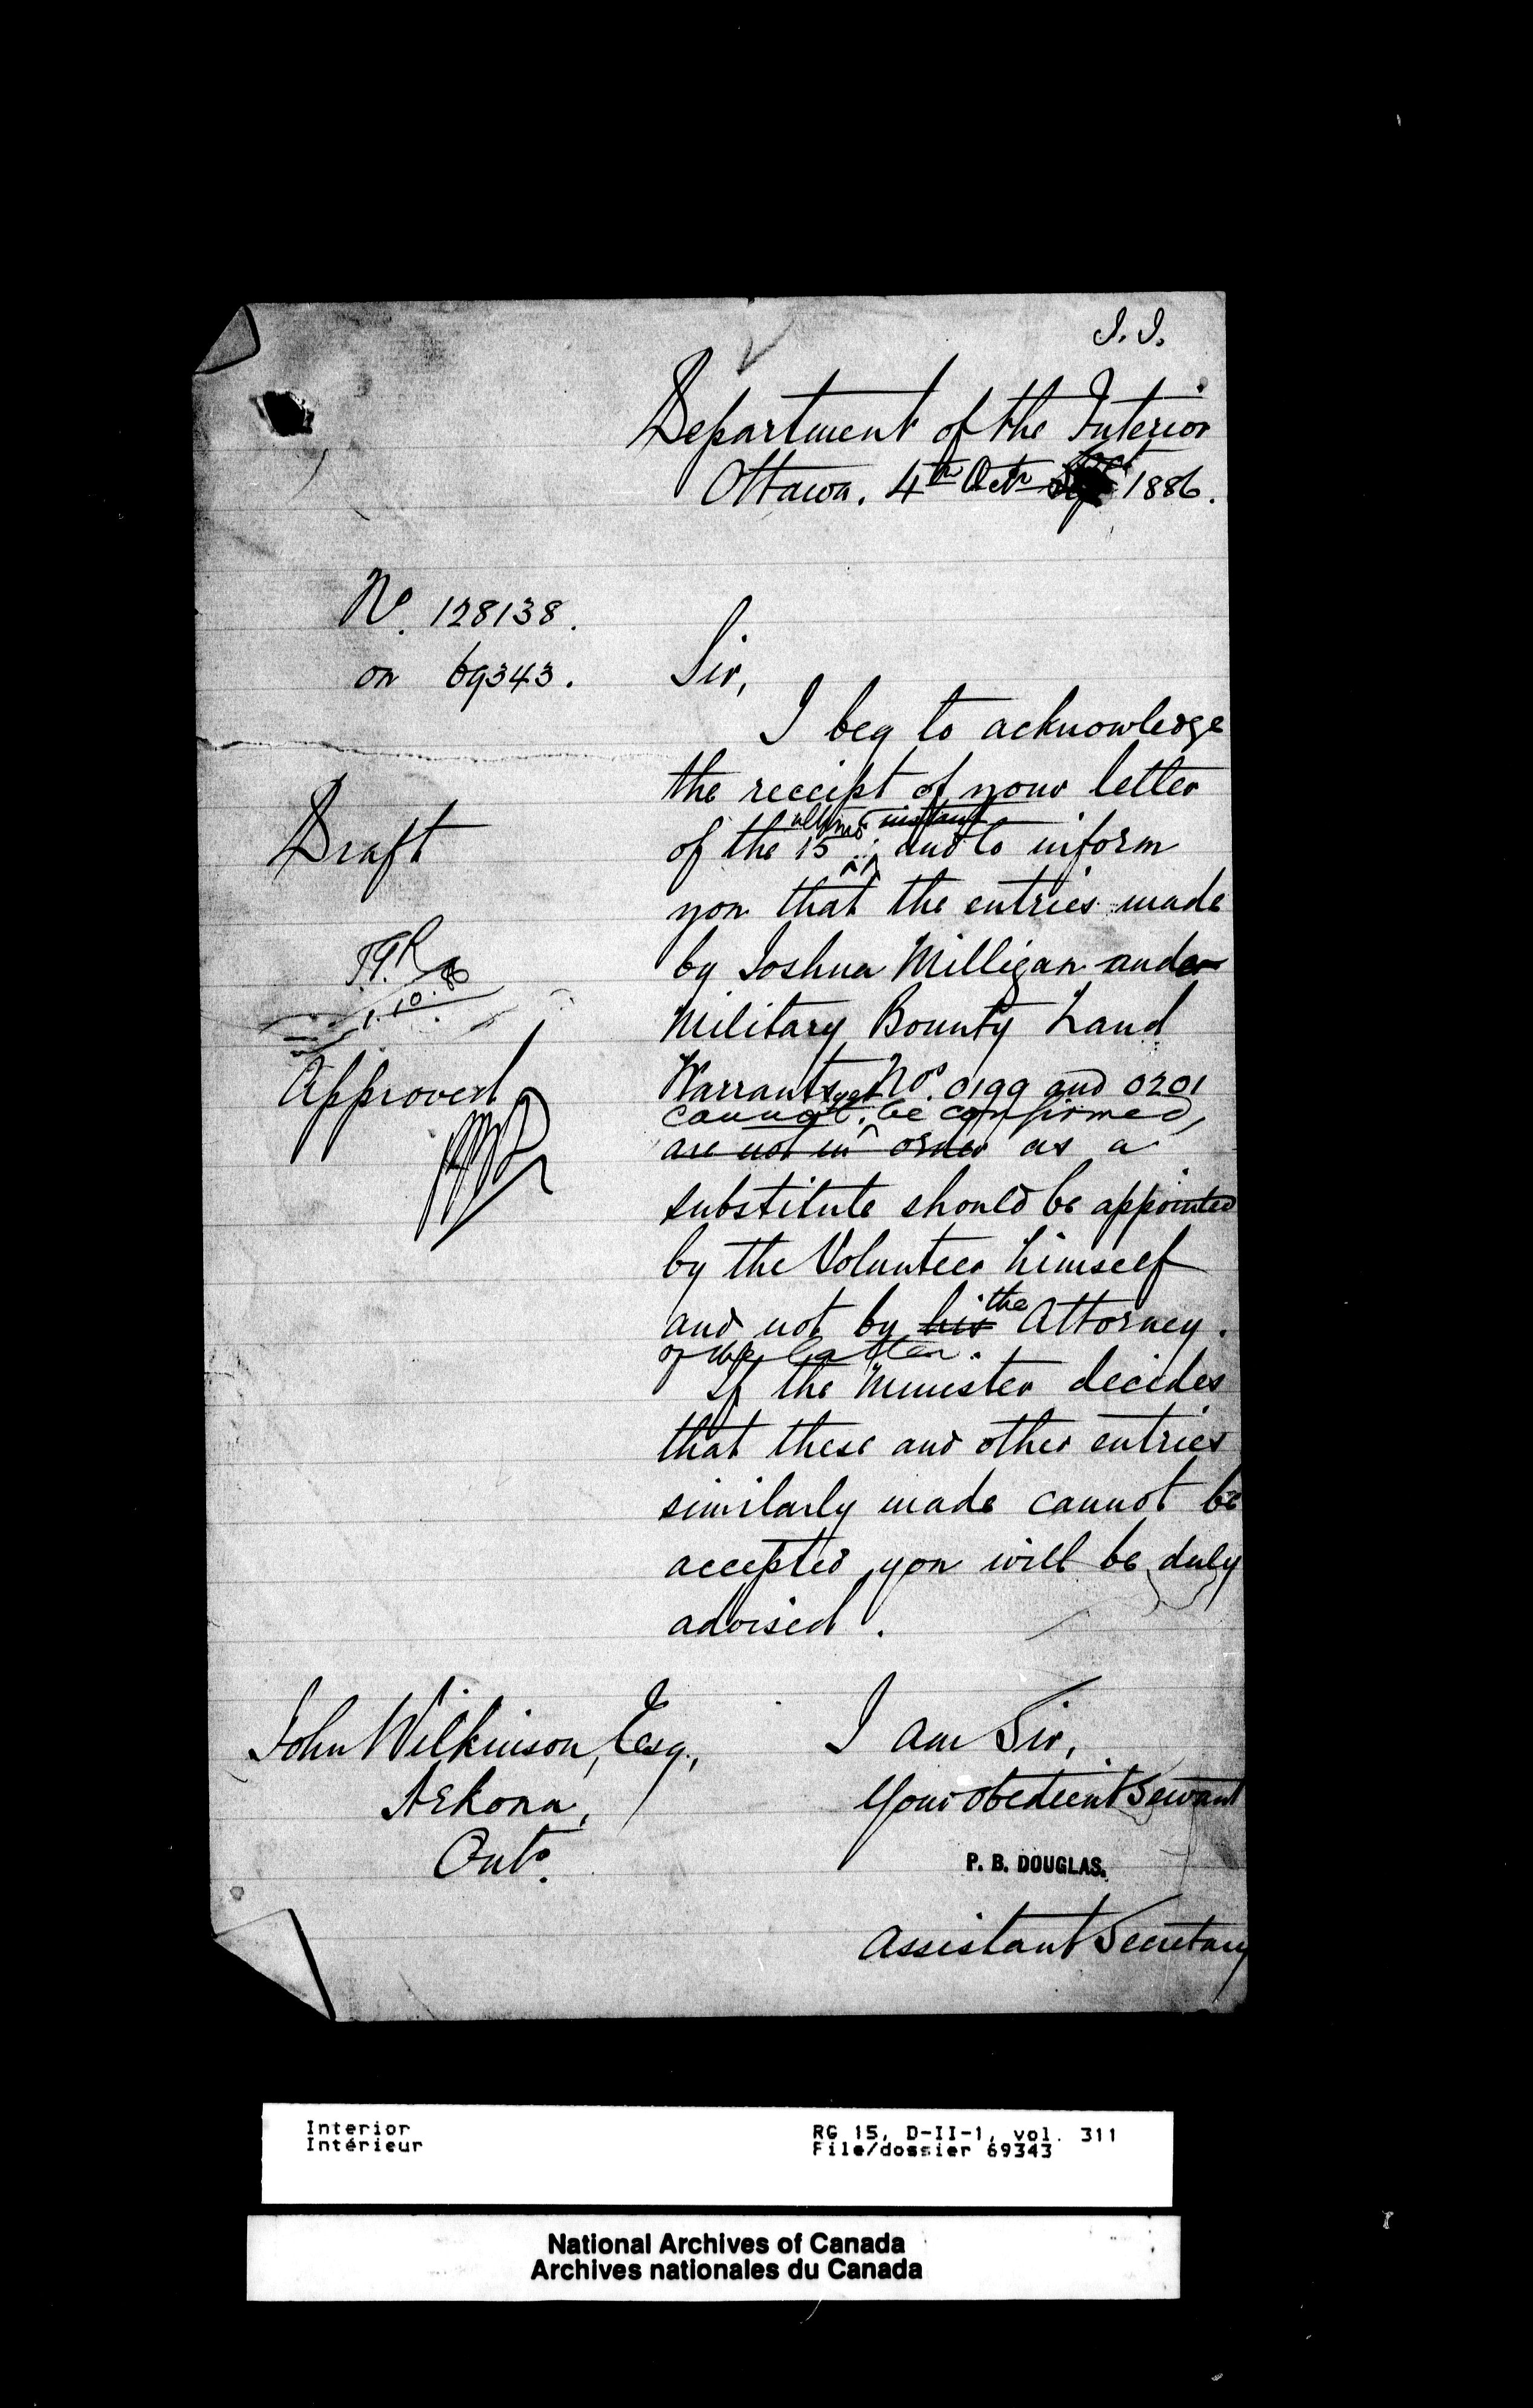 J. J.
Department of the Interior
Ottawa, 4th Octr Sept 1886.
No. 128138.
on 69343.
Sir,
I beg to acknowledge
the receipt of your letter
ultimo instant
of the 15 and to inform
Draft
you that the entries made
by Joshua Milligan under
1.10.86
Military Bounty Land
Approved
Warrants Nos. 0199 and 0201
cannot yet be confirmed,
are not in order as a
substitute should be appointed
by the Volunteer himself
and not by his the Attorney.
of the latter.
If the Minister decides
that these and other entries
similarly made cannot be
accepted, you will be duly
advised.
I am Sir,
Your obedient Servant
P. B. DOUGLAS.
Assistant Secretary
John Wilkinson, Esq.,
Arkona,
Onto.
Interior
Intérieur
RG 15, D-II-1, vol. 311
File/dossier 69343
National Archives of Canada
Archives nationales du Canada